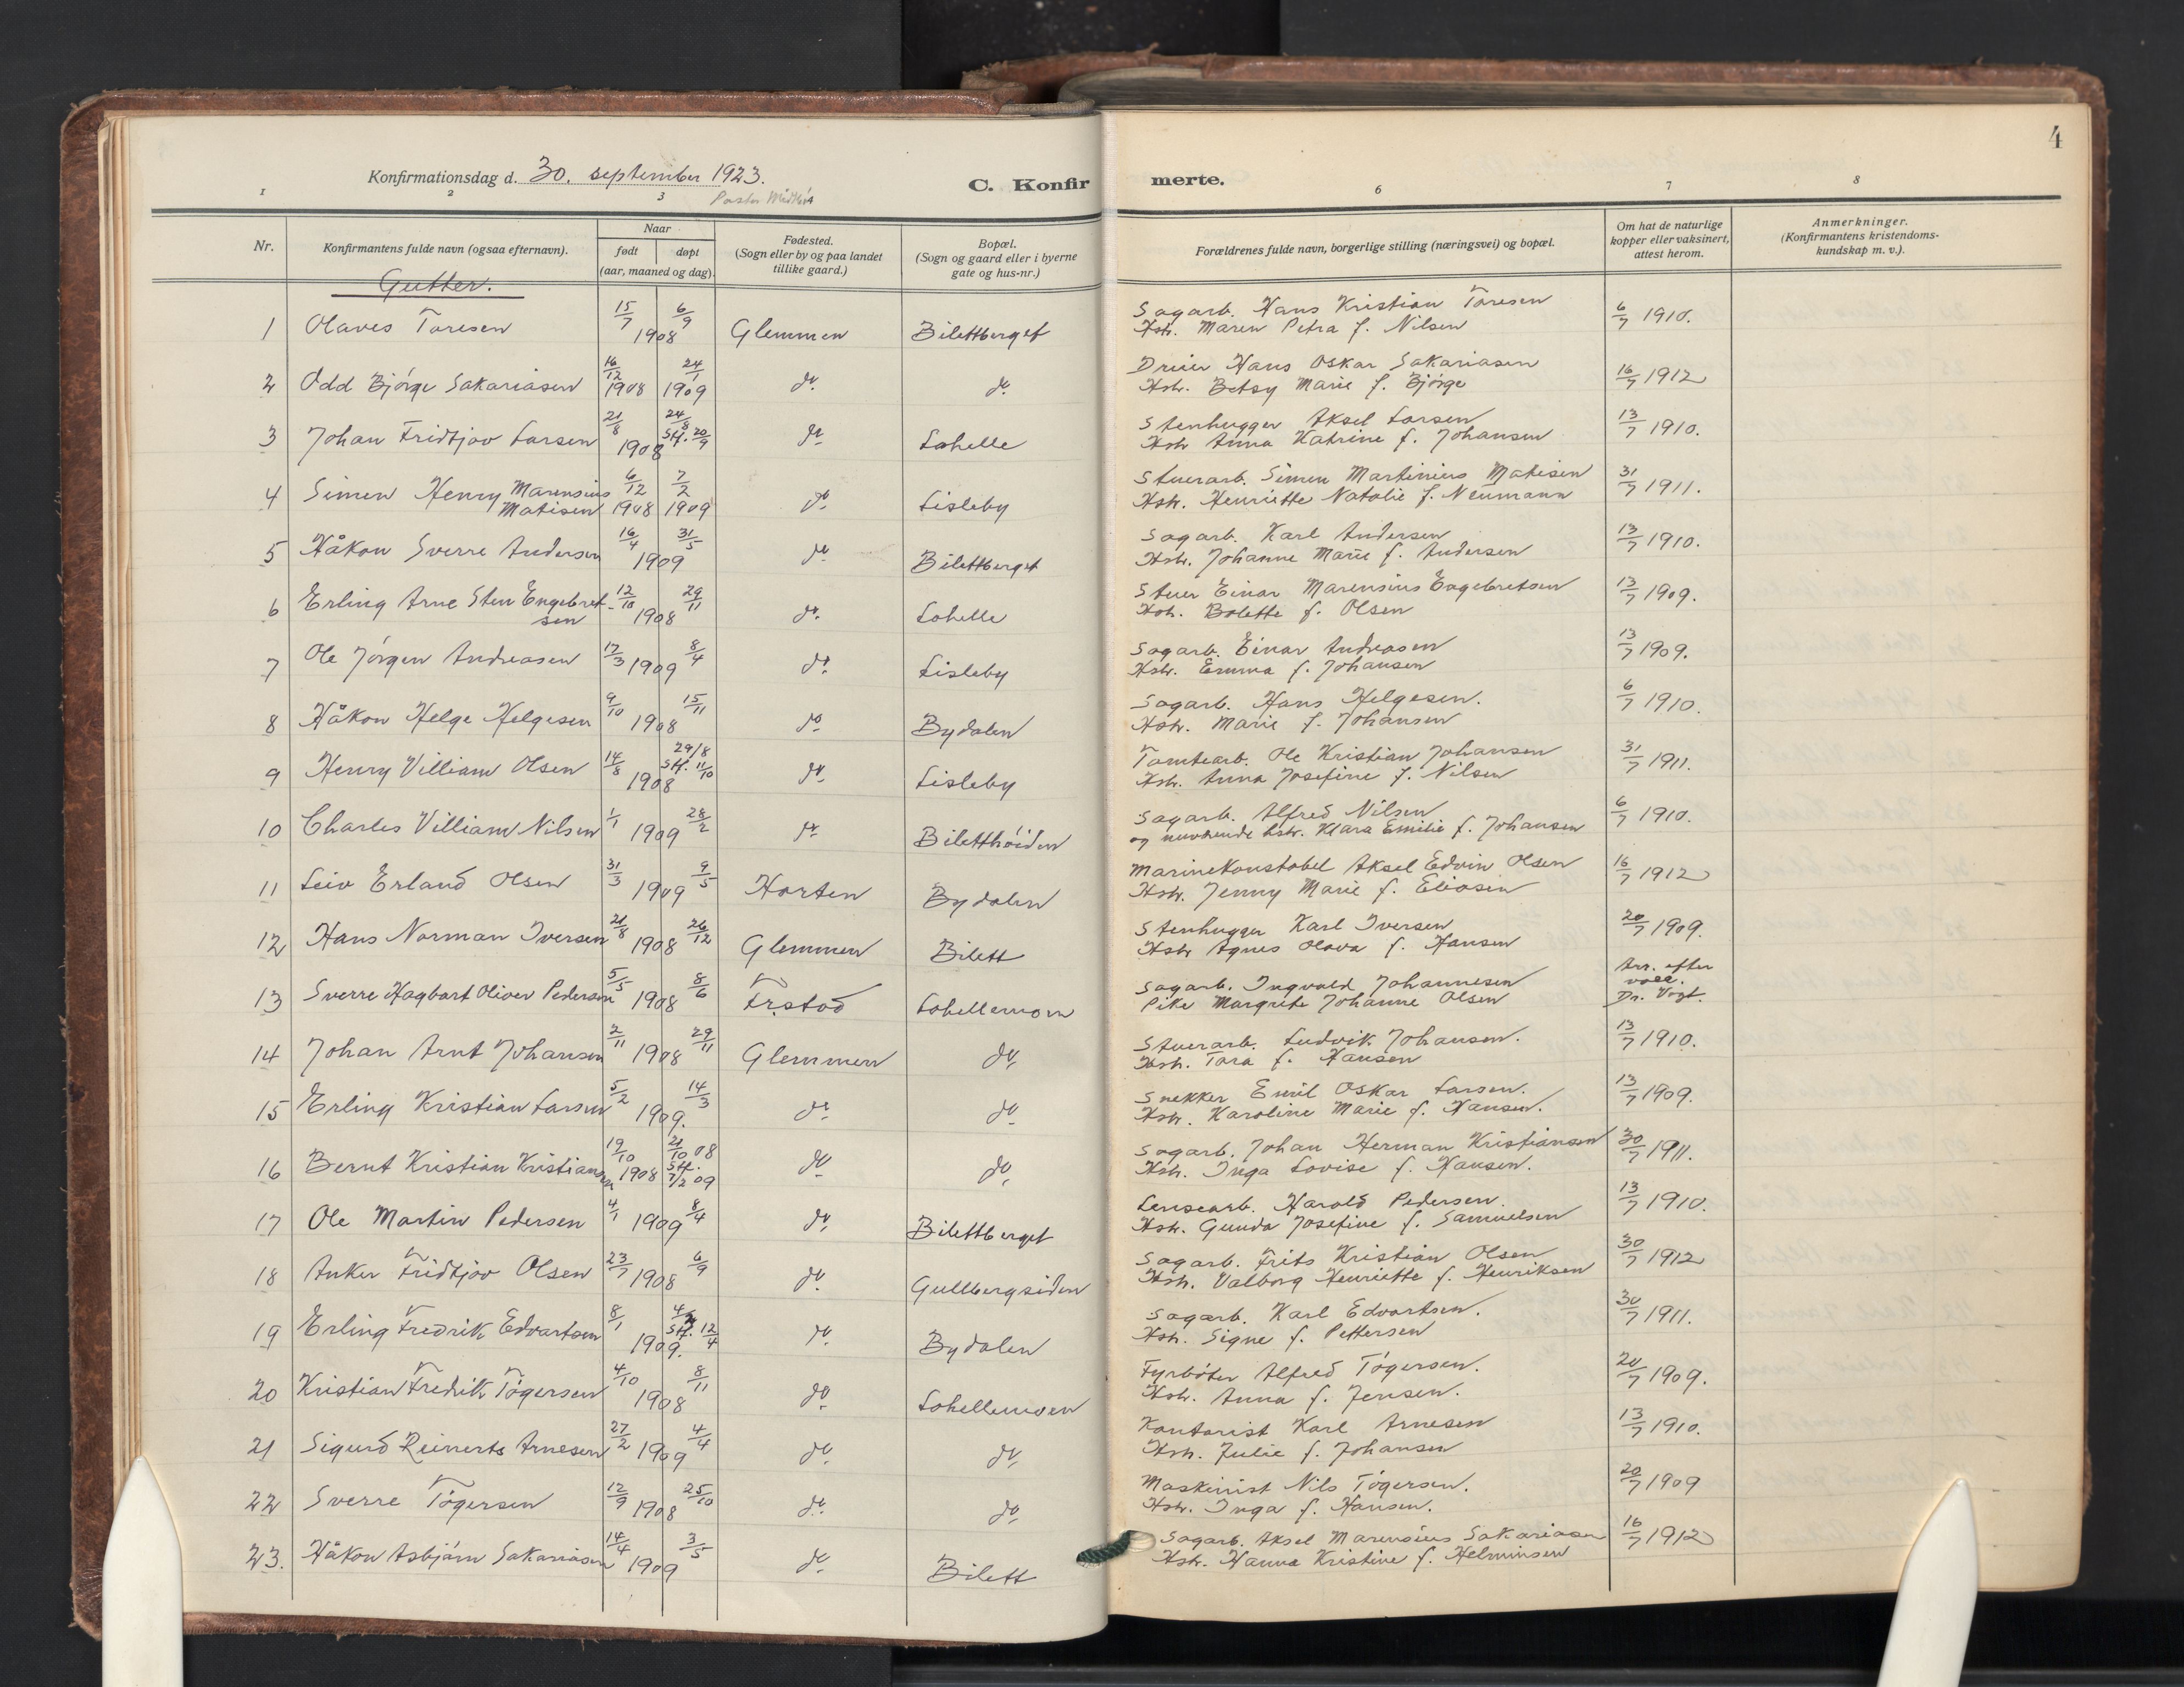 4
Konfirmationsdag d. 30. september 1923.
C. Konfirmerte.
1 2 3 4 6 7 8
Nr.
Konfirmantens fulde navn (ogsaa efternavn).
Naar
født døpt
(aar, maaned og dag).
Fødested.
(Sogn eller by og paa landet
tillike gaard.)
Bopæl.
(Sogn og gaard eller i byerne
gate og hus-nr.)
Forældrenes fulde navn, borgerlige stilling (næringsvei) og bopæl.
Om hat de naturlige
kopper eller vaksinert,
attest herom.
Anmerkninger.
(Konfirmantens kristendoms-
kundskap m. v.).
Gutter.
1 Olaves Toresen 15/7 6/9 1908 Glemmen Bilettberget Sagarb. Hans Kristian Toresen 6/7 1910.
Hstr. Maren Petra f. Nilsen
2 Odd Bjørge Sakariasen 16/12 1908 24/1 1909 do. do. Hans Oskar Sakariasen 16/7 1912
Hstr. Betsy Marie f. Bjørge
3 Johan Fridtjov Larsen 21/8 24/8 Stf. 20/9 1908 do Lahelle Stenhugger Aksel Larsen 13/7 1910.
Hstr Anna Katrine f. Johansen
4 Simen Henry Marensius 6/12 7/2 Stuerarb. Simen Martinius Matisen 31/7 1911.
Matisen 1908 1909 do Lisleby Hstr. Henriette Natalie f. Neumann
5 Håkon Sverre Andersen 16/4 31/5 1909 do Bilettberget Sagarb. Karl Andersen 13/7 1910.
Hstr. Johanne Marie f. Andersen
6 Erling Arne Sten Engebret- 12/10 29/11 Stuer Einar Marensius Engebretsen 13/7 1909.
sen 1908 do. Lahelle Hstr. Bolette f. Olsen
7 Ole Jørgen Andreasen 17/3 1909 8/4 do. Lisleby Sagarb. Einar Andreasen 13/7 1909.
Hstr. Emma f. Johansen
8 Håkon Helge Helgesen 9/10 15/11 1908 do Bydalen Sagarb. Hans Helgesen. 6/7 1910.
Hstr. Marie f. Johansen
9 Henry Villiam Olsen 14/8 29/8 Stf. 11/10 1908 do Lisleby Tomtearb. Ole Kristian Johansen 31/7 1911.
Hstr. Anna Josefine f. Nilsen
10 Charles Villiam Nilsen 1/1 28/2 1909 do Biletthøiden Sagarb. Alfred Nilsen 6/7 1910.
og nuværende hstr. Klara Emilie f. Johansen
11 Leiv Erland Olsen 31/3 9/5 1909 Horten Bydalen Marinekonstabel Aksel Edvin Olsen 16/7 1912
Hstr. Jenny Marie f. Eliasen
12 Hans Norman Iversen 21/8 26/12 1908 Glemmen Bilett Stenhugger Karl Iversen 20/7 1909.
Hstr Agnes Olava f. Hansen
13 Sverre Hagbart Oliver Pedersen 5/5 8/6 1908 Fr.stad Lahellemoen Sagarb. Ingvald Johannesen Arr. efter
Pike Margrete Johanne Olsen vacc. Dr. Vogt.
14 Johan Arnt Johansen 2/11 29/11 1908 Glemmen do. Stuerarb. Ludvik Johansen. 13/7 1910.
Hstr. Tora f. Hansen
15 Erling Kristian Larsen 5/2 14/3 1909. do do Snekker Emil Oskar Larsen. 13/7 1909.
Hstr. Karoline Marie f. Hansen.
16 Bernt Kristian Kristiansen 19/10 1908 21/10 08 Stf. 7/2 09 do do. Sagarb. Johan Herman Kristiansen 30/7 1911.
Hstr. Inga Lovise f. Hansen.
17 Ole Martin Pedersen 4/1 8/4 1909 do. Bilettberget Lensearb. Harald Pedersen. 13/7 1910.
Hstr. Gunda Josefine f. Samuelsen
18 Anker Fridtjov Olsen 23/7 6/9 1908 do. Gullbergsiden Sagarb. Frits Kristian Olsen 30/7 1912
Hstr. Valborg Henriette f. Henriksen
19 Erling Fredrik Edvartsen 8/1 Stf. 12/4 1909. do Bydalen Sagarb. Karl Edvartsen. 30/7 1911.
Hstr. Signe f. Pettersen
20 Kristian Fredrik Tøgersen 4/10 8/11 1908 do Lahellemoen Fyrbøter Alfred Tøgersen. 20/7 1909.
Hstr. Anna f. Jensen.
21 Sigurd Reinerts Arnesen 27/2 4/4 1909 do do. Kontorist Karl Arnesen 13/7 1910.
Hstr. Julie f. Johansen
22 Sverre Tøgersen 12/9 25/10 1908 do. do. Maskinist Nils Tøgersen. 20/7 1909
Hstr. Inga f. Hansen.
23. Håkon Asbjørn Sakariasen 14/4 3/5 1909 do. Bilett Sagarb. Aksel Marensius Sakariasen 16/7 1912
Hstr. Hanna Kristine f. Helminsen